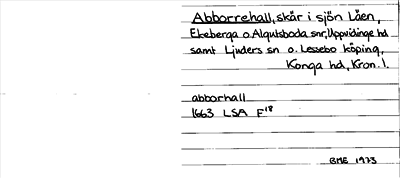 Abborrehall, skär i sjön Låen,
Ekeberga o. Algutsboda snr, Uppvidinge hd
samt Ljuders sn o. Lessebo köping,
Konga hd, Kron. l.
abborhall
1663 LSA F¹⁸
BME 1973